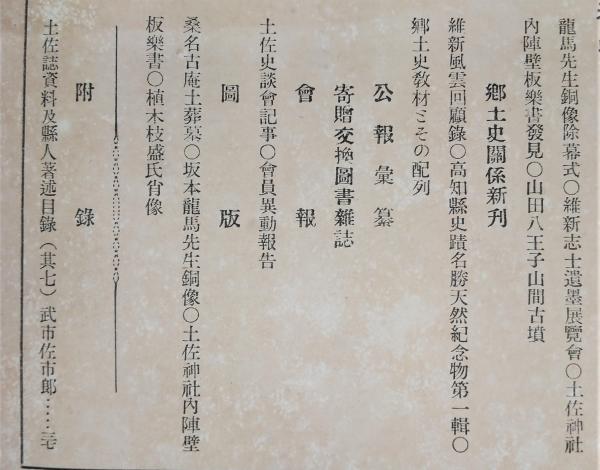 龍馬先生銅像除幕式〇維新志士遺墨展覽會〇土佐神社
內陣壁板樂書發見〇山田八王子山間古墳
鄕土史關係新刊
維新風雲回顧錄〇高知縣史蹟名勝天然紀念物第一輯〇
鄕土史敎材とその配列
公報彙纂
寄贈交換圖書雜誌
會報
土佐史談會記事〇會員異動報告
圖版
桑名古庵土葬墓〇坂本龍馬先生銅像〇土佐神社內陣壁
板樂書〇植木枝盛氏肖像
附錄
土佐誌資料及縣人著述目錄（其七）武市佐市郎……